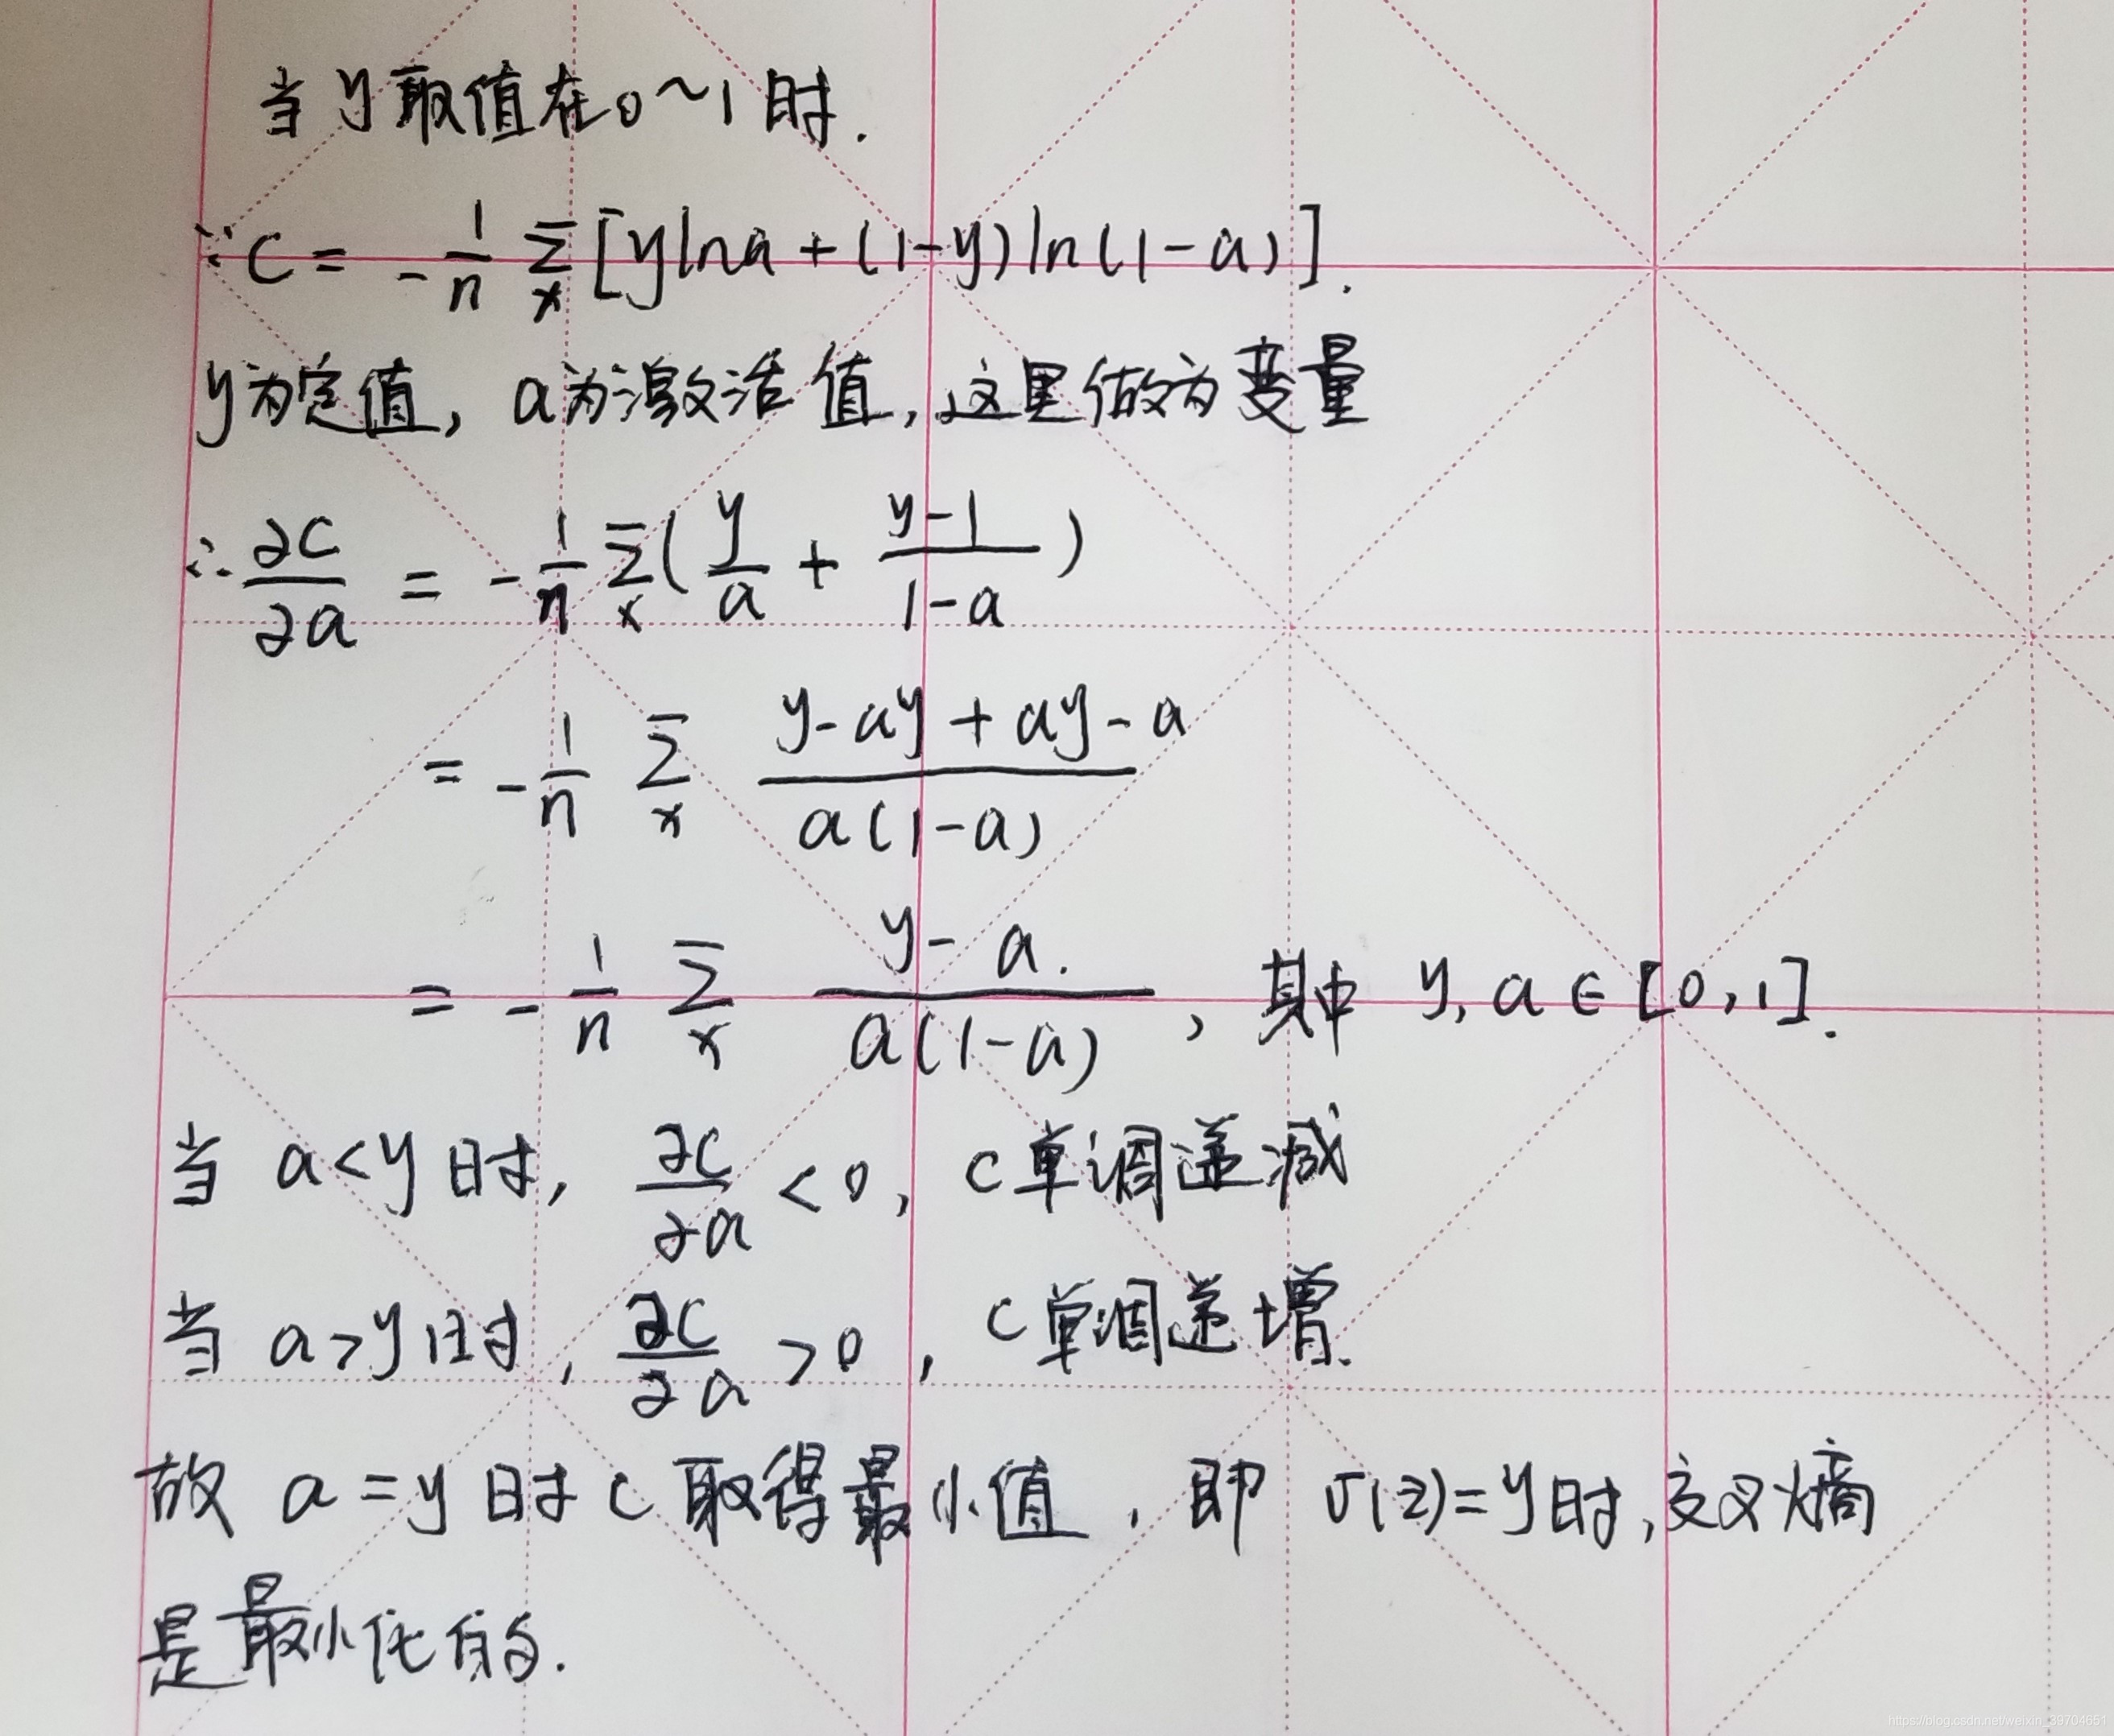 当y取值在0~1时.
∵C = -1/n Σx [ylna + (1-y)ln(1-a)].
y为定值, a为激活值, 这里做为变量
∴ ∂C/∂a = -1/n Σx (y/a + (y-1)/(1-a))
= -1/n Σx (y-ay+ay-a)/(a(1-a))
= -1/n Σx (y-a.)/(a(1-a)), 其中 y, a∈[0,1].
当 a<y时, ∂C/∂a <0, C单调递减
当 a>y时, ∂C/∂a >0, C单调递增.
故 a=y时C取得最小值, 即 σ(z)=y时,交叉熵
是最小化的.
https://blog.csdn.net/weixin_39704651